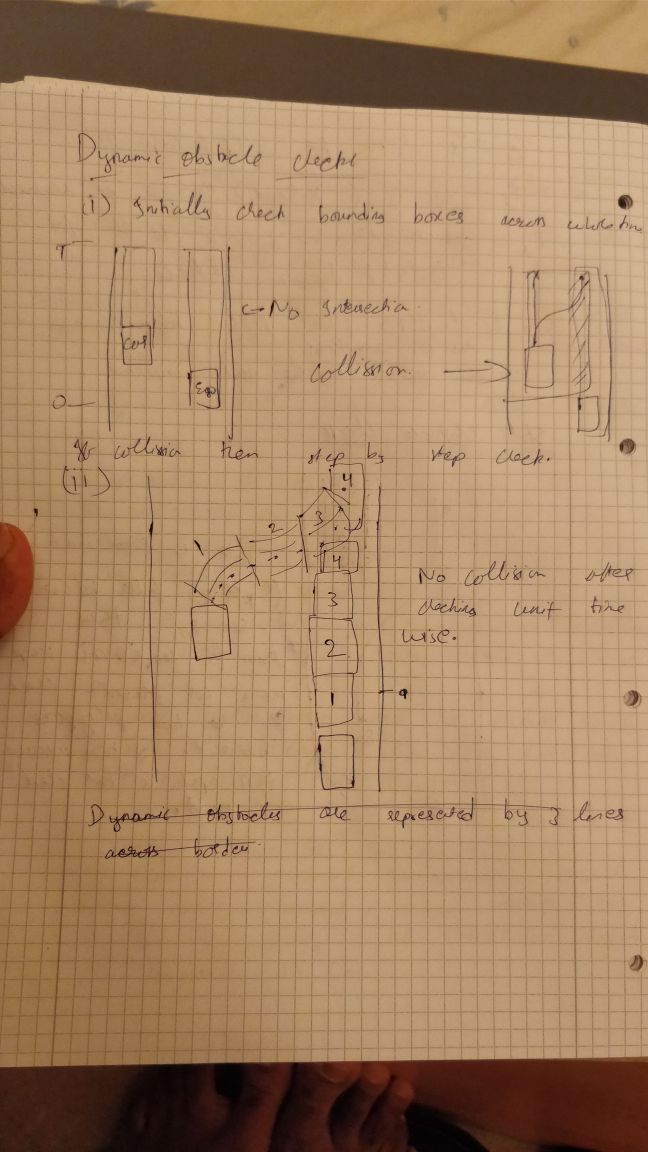 Dynamic obstacle check
(i) Initially check bounding boxes across whole time
T
Car
Ego
← No Intersection.
Collision.
0
If collision then step by step check.
(ii)
4
1 2 3
4
3
2
1
No collision after
checking unit time
wise.
Dynamic obstacles are represented by 3 lines
across border.